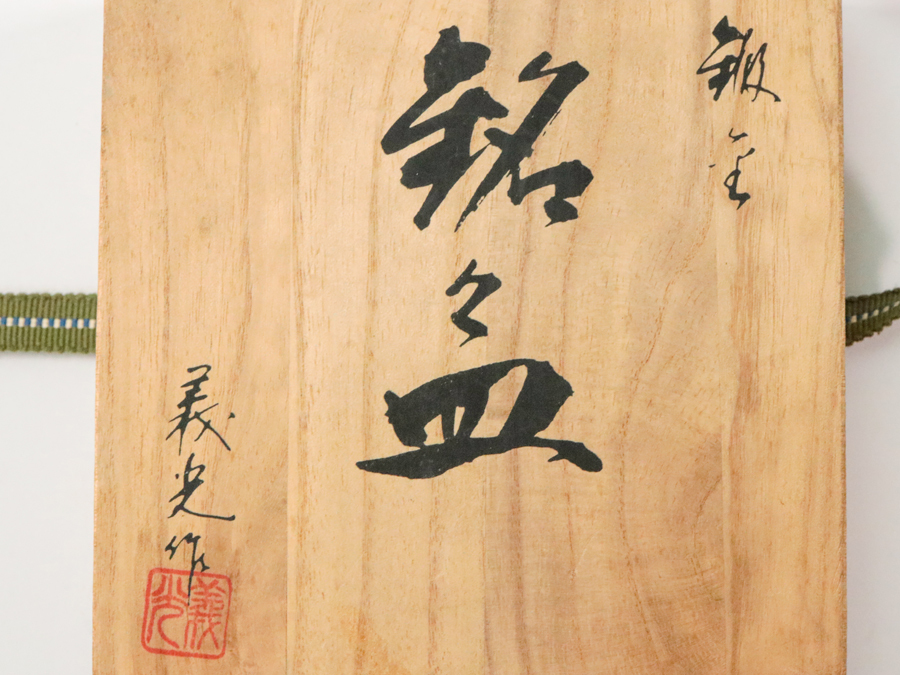 鍛金
銘々皿
義光作
義光